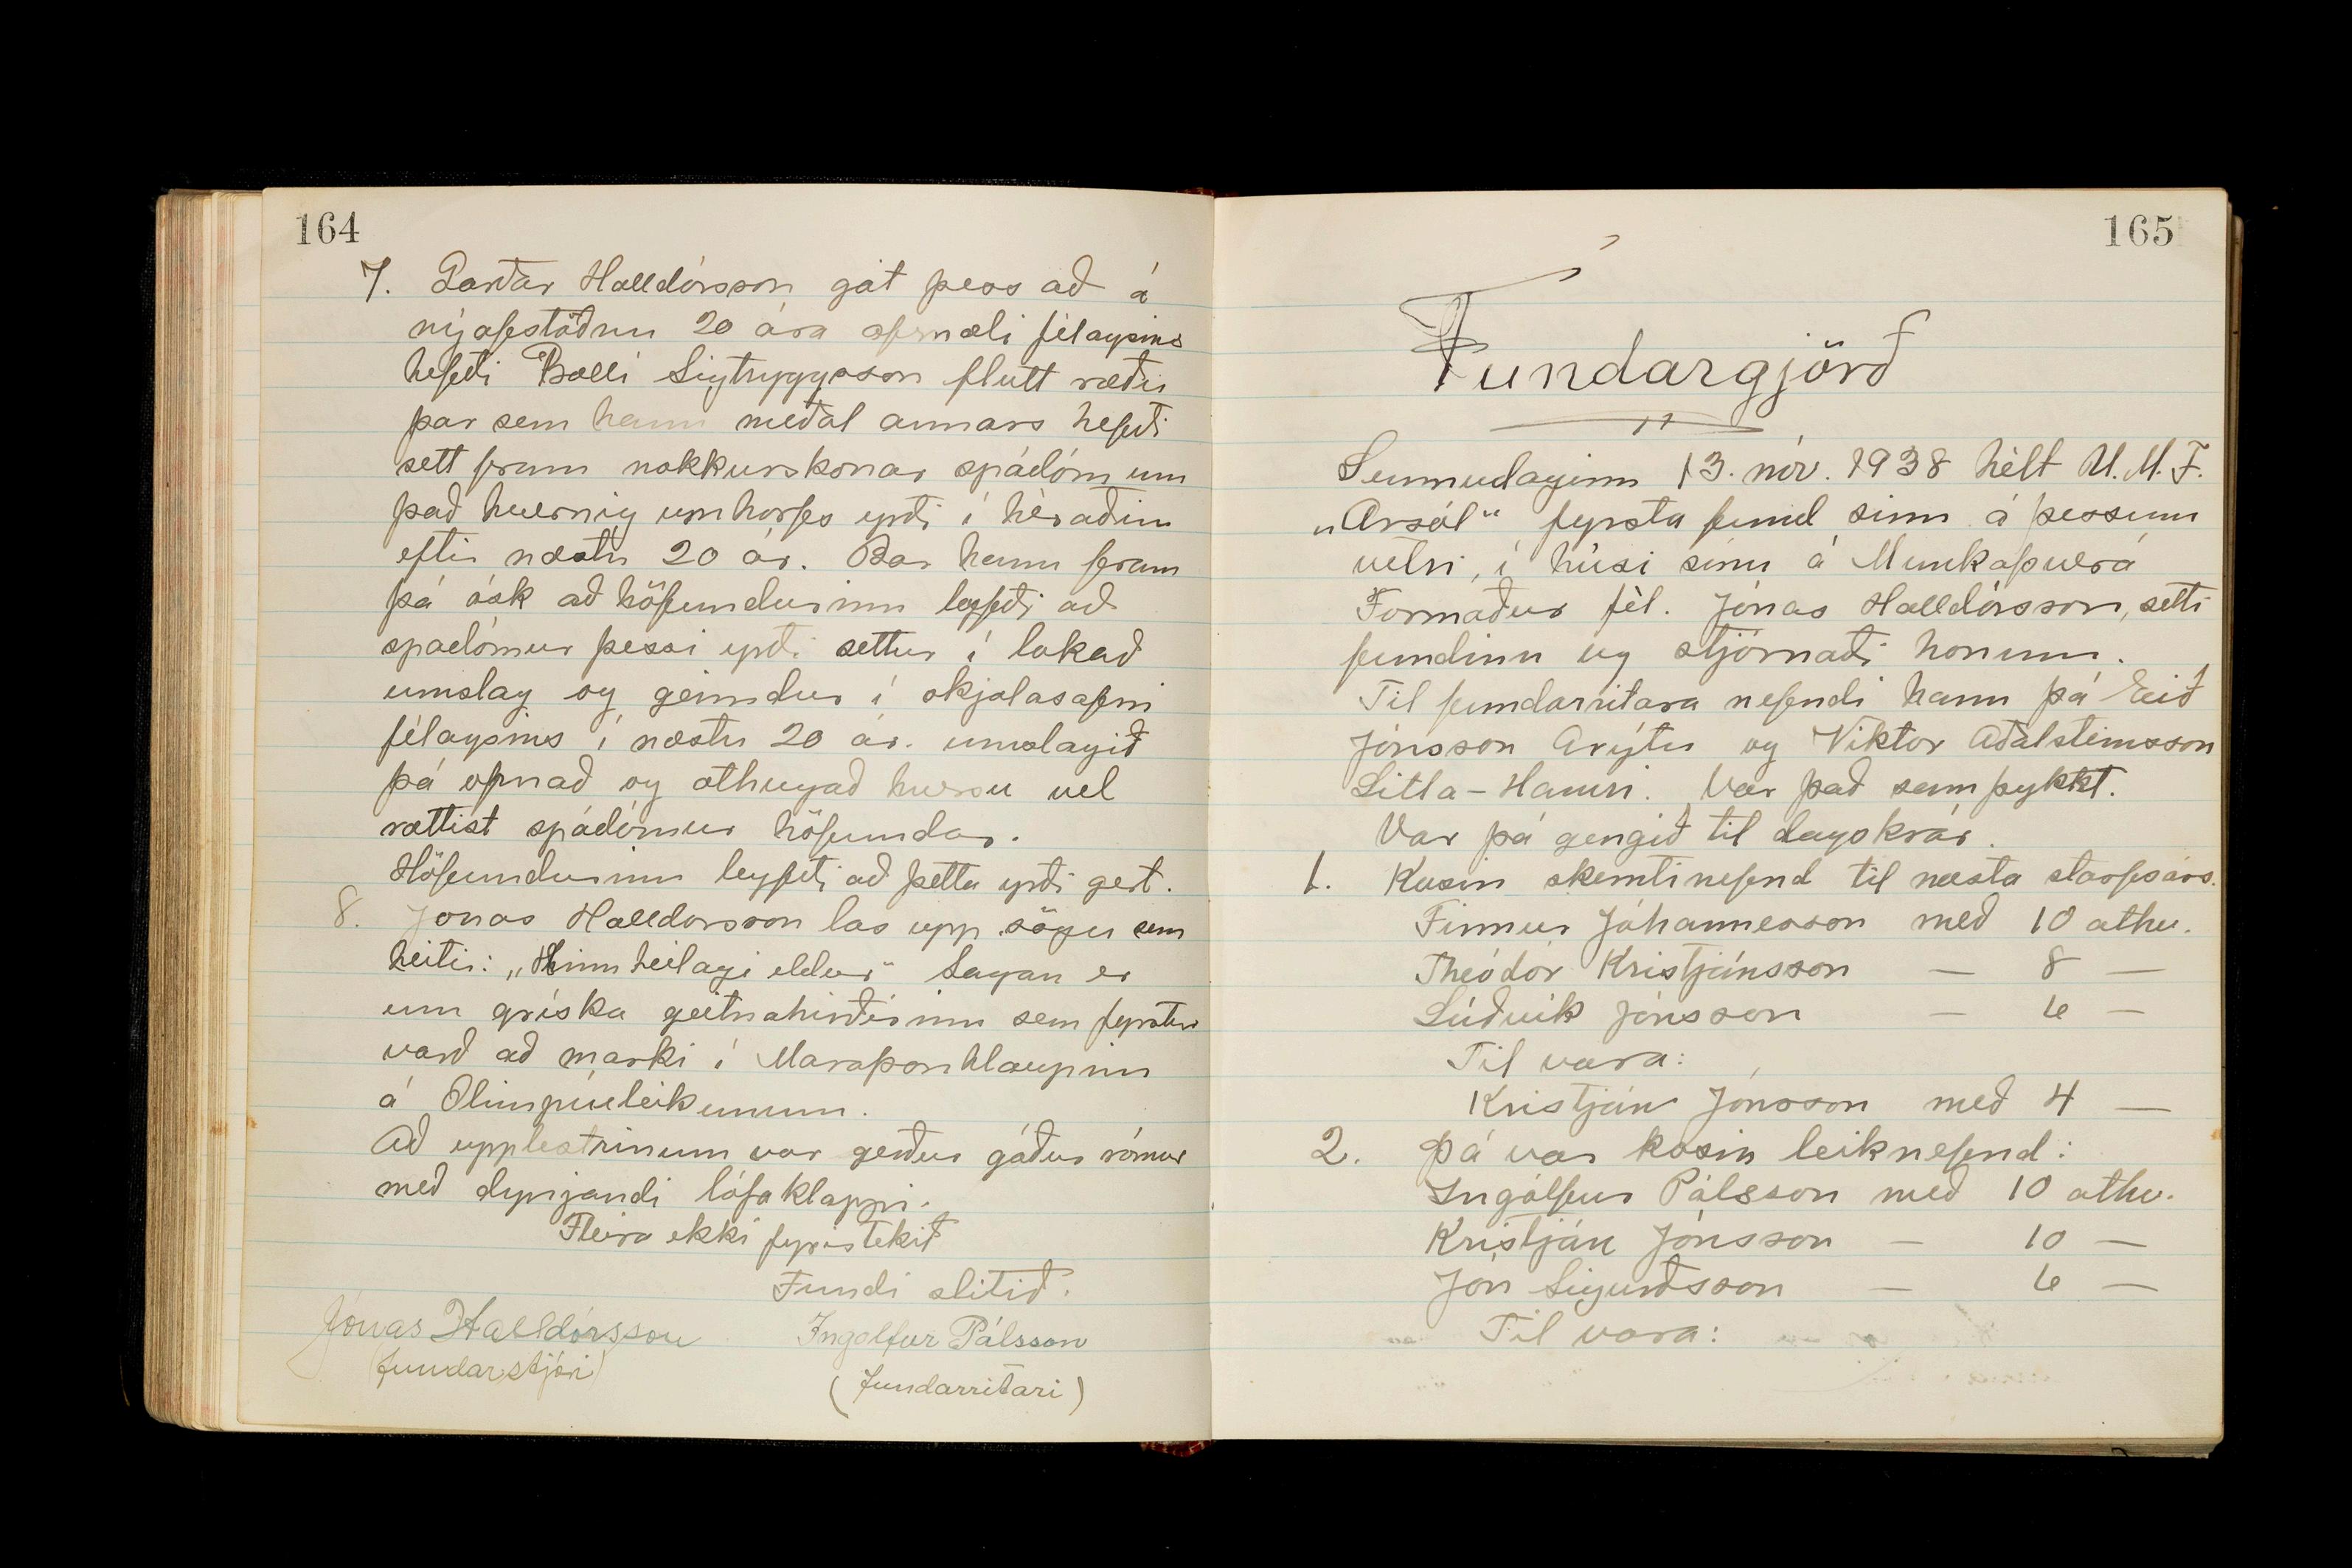 164
7. Garðar Halldórsson gat þess að á
nýafstöðnu 20 ára afmæli félagsins
hefði Balli Sigtryggsson flutt ræðu
þar sem hann meðal annars hefði
sett fram nokkurskonar spádóm um
það hvernig umhorfs yrði í héraðinu
eftir næstu 20 ár. Bar hann fram
þá ósk að höfundurinn leyfði að
spadómur þessi yrði settur í lokað
umslag og geimdur í skjalasafni
félagsins í næstu 20 ár. umslagið
þá opnað og athugað hversu vel
rættist spádómur höfundar.
Höfundurinn leyfði að þetta yrði gert.
8. Jonas Halldorsson las upp sögu sem
heitir: „Hinn heilagi eldur" Sagan er
um gríska geitnahirðirinn sem fyrstur
varð að marki í Maraþonhlaupinu
á Olimpíuleikunum.
Að upplestrinum var gerður góður rómur
með dynjandi lófaklappi.
Fleira ekki fyristekið
Fundi slitið.
Jónas Halldórsson Ingolfur Pálsson
(fundarstjóri) (fundarritari)
165
Fundargjörð
Sunnudaginn 13. nóv. 1938 hélt U.M.F.
„Arsól" fyrsta fund sinn á þessum
vetri, í húsi sínu á Munkaþverá
Formaður fél. Jónas Halldórsson, setti
fundinn og stjórnaði honum.
Til fundarritara nefndi hann þá Eið
Jónsson Arýtu og Viktor Aðalsteinsson
Litla-Hamri. Var það samþykkt.
Var þá gengið til dagskrár.
1. Kosin skemtinefnd til næsta starfsárs.
Finnur Jóhannesson með 10 atkv.
Theódór Kristjánsson — 8 —
Lúðvík Jónsson — 6 —
Til vara:
Kristján Jónsson með 4 —
2. Þá var kosin leiknefnd:
Ingólfur Pálsson með 10 atkv.
Kristján Jónsson — 10 —
Jón Sigurðsson — 6 —
Til vara: